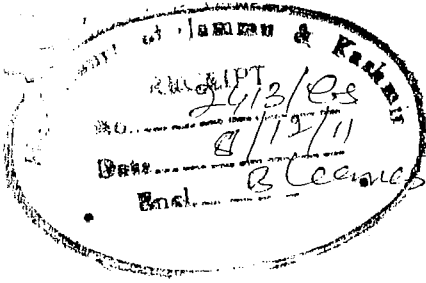 of Jammu & Kashmir
RECEIPT
No. 2413/CS
Date 8/12/11
Encl.